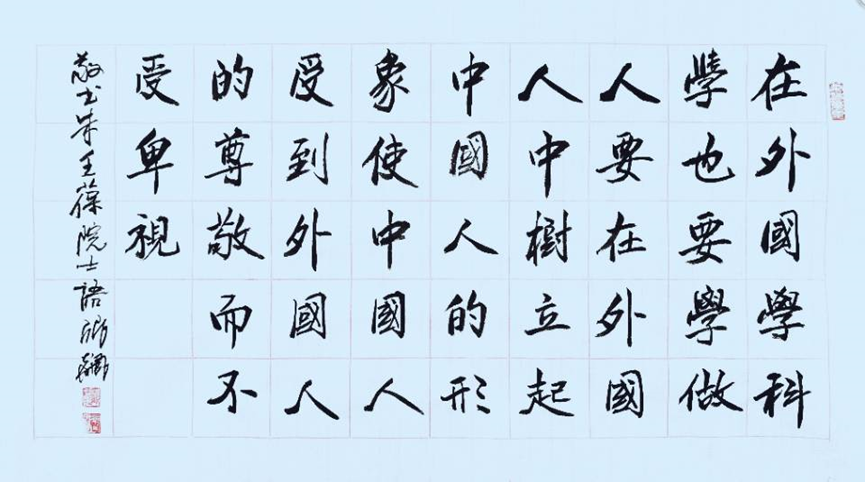 在外國學科
學也要學做
人要在外國
人中樹立起
中國人的形
象使中國人
受到外國人
的尊敬而不
受卑視
敬書朱王葆院士語